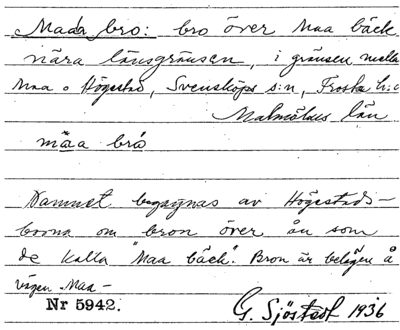 Mada bro: bro över Maa bäck
nära länsgränsen, i gränsen mella
Maa o Högestad, Svensköps s:n, Frosta h:d
Malmöhus län
mäa bró
Namnet begagnas av Högestads-
borna om bron över ån som
de kalla "Maa bäck". Bron är belägen å
vägen Maa-
Nr 5942. G. Sjöstedt 1936